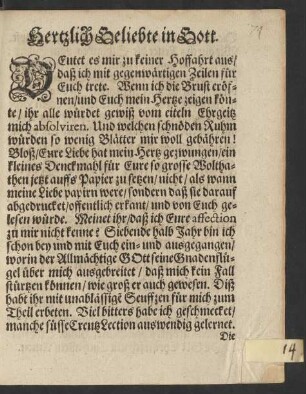 Hertzlich Geliebte in Gott.
DEutet es mir zu keiner Hoffahrt aus/
daß ich mit gegenwärtigen Zeilen für
Euch trete. Wenn ich die Brust eröf-
nen/und Euch mein Hertze zeigen kön-
te/ ihr alle würdet gewiß vom eiteln Ehrgeitz
mich absolviren. Und welchen schnöden Ruhm
würden so wenig Blätter mir woll gebähren!
Bloß/Eure Liebe hat mein Hertz gezwungen/ein
kleines Denckmahl für Eure so grosse Woltha-
then jetzt auffs Papir zu setzen/ nicht/ als wann
meine Liebe papirn were/sondern daß sie darauf
abgedrucket/offentlich erkant/ und von Euch ge-
lesen würde. Meinet ihr/daß ich Eure affection
zu mir nicht kenne? Siebende halb Jahr bin ich
schon bey und mit Euch ein- und ausgegangen/
worin der Allmächtige GOtt seine Gnadenflü-
gel über mich ausgebreitet / daß mich kein Fall
stürtzen können/ wie groß er auch gewesen. Diß
habt ihr mit unablässige Seuffzen für mich zum
Theil erbeten. Viel bitters habe ich geschmecket/
manche süsse Creutz Lection auswendig gelernet.
Die
14